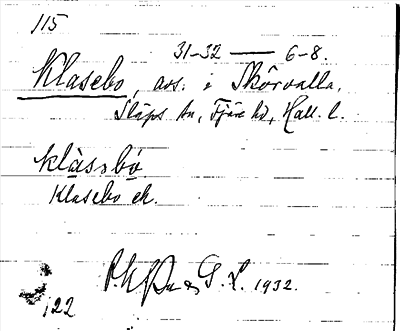 115
31-32 — 6-8.
Klasebo, avs. i Skörvalla,
Släps sn, Fjäre hd, Hall. l.
klàsəbò
Klasebo ek.
G. L. 1932.
122